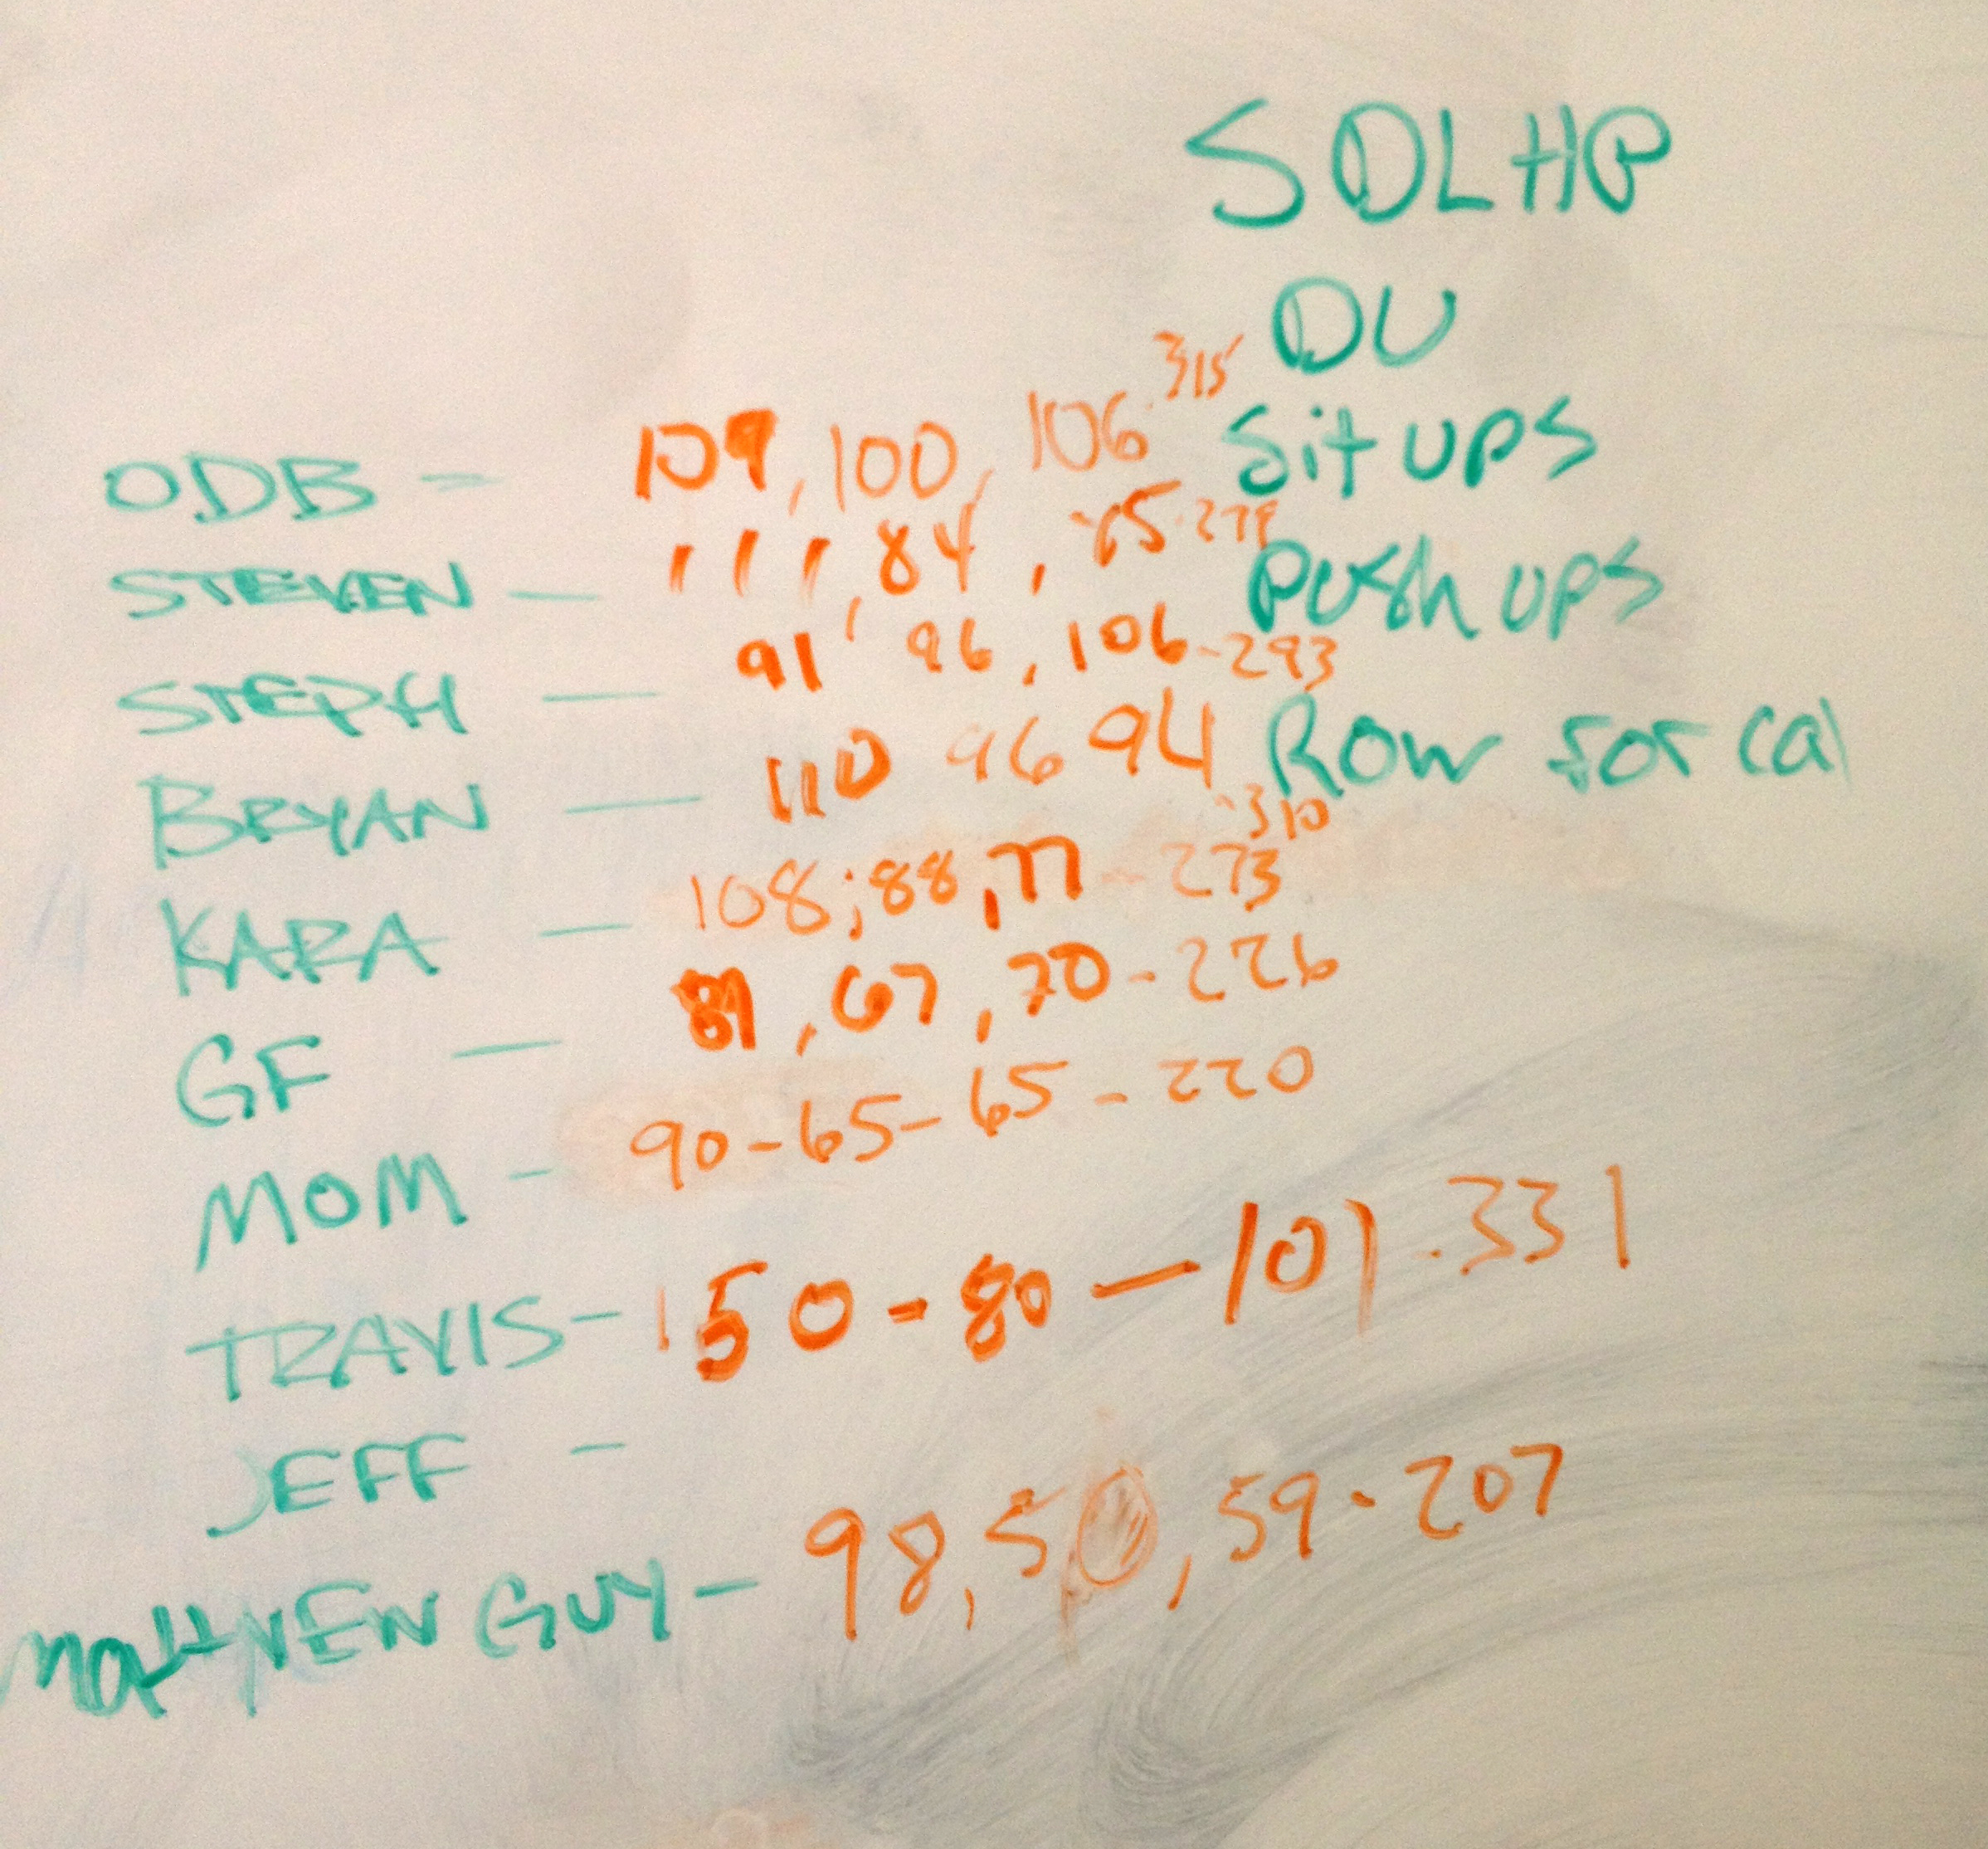 SDLHP
DU
Sit ups
Push ups
Row for Cal
ODB - 109, 100, 106 - 315
STEVEN - 111, 84, 85 - 279
STEPH - 91, 96, 106 - 293
BRYAN - 110 96 94 - 310
KARA - 108, 88, 77 - 273
GF - 89, 67, 70 - 226
MOM - 90 - 65 - 65 - 220
TRAVIS - 150 - 80 - 101 - 331
JEFF -
GUY - 98, 50, 59 - 207